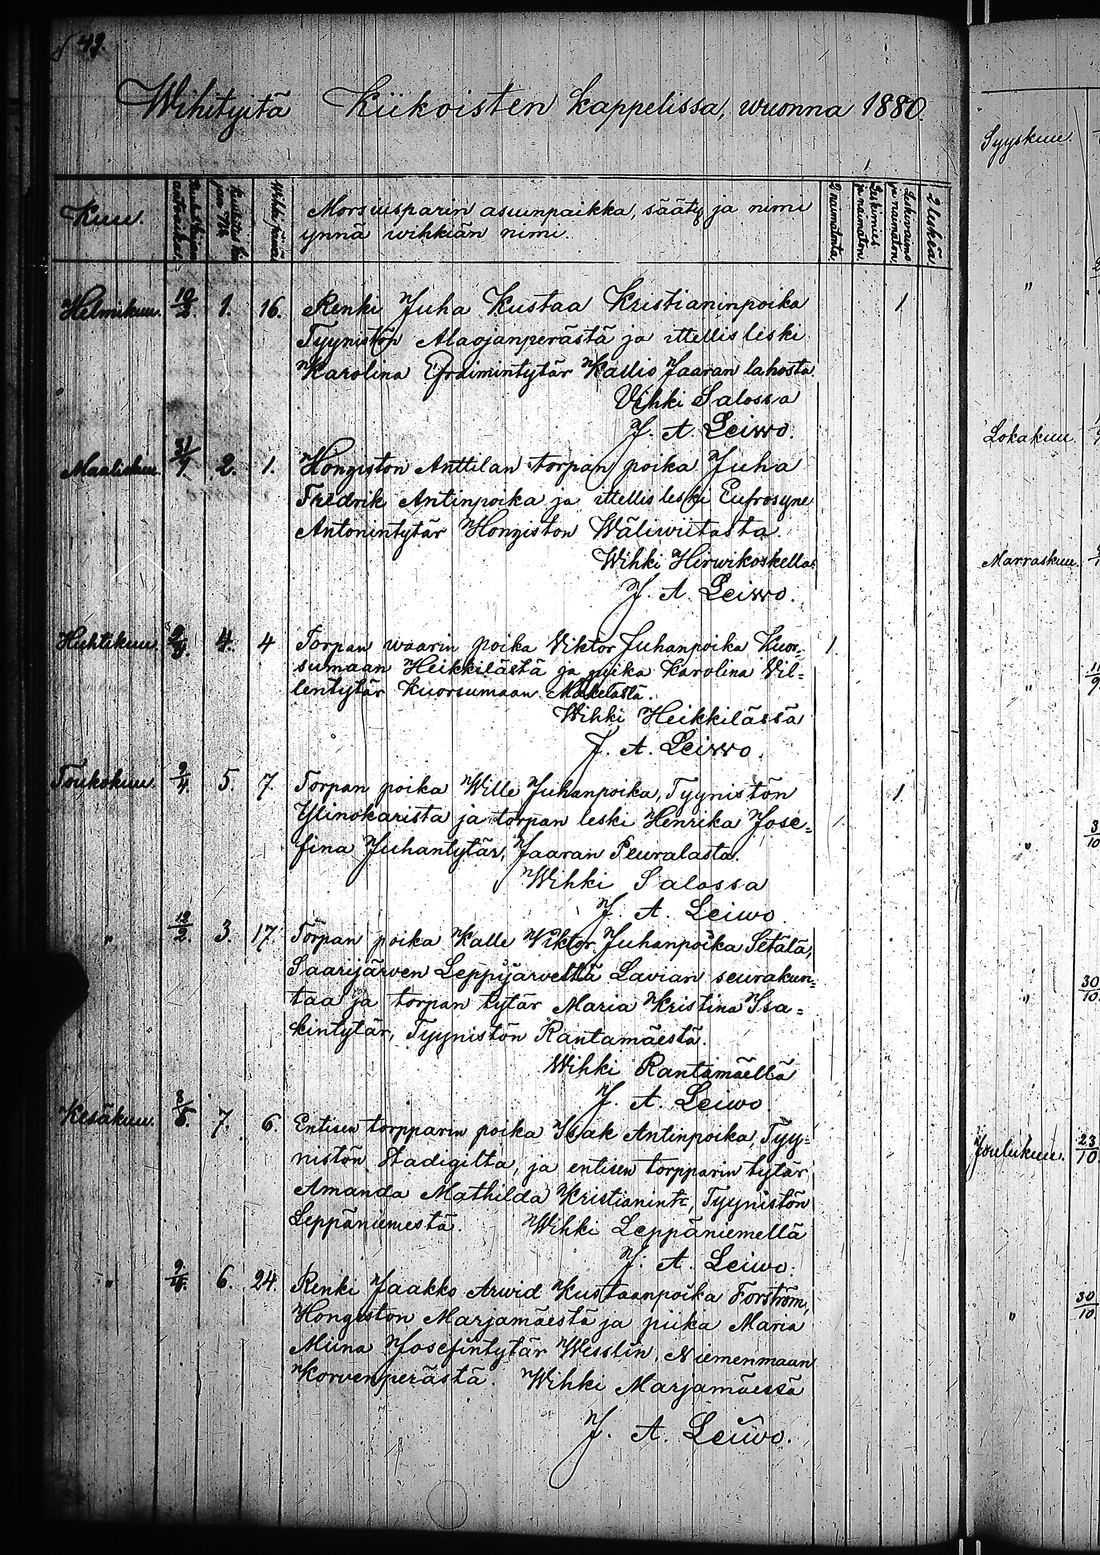 49.
Wihityitä Kiikoisten kappelissa, wuonna 1880.
Kuu.
Wihkipäivä
Morsiusparin asuinpaikka, sääty ja nimi
ynnä wihkiän nimi.
2 naimatonta.
Leskimies ja naimaton.
Leskivaimo ja naimaton.
2 leskiä.
Helmikuu. 1. 16. Renki Juha Kustaa Kristianinpoika 1
Tyynistön Alaojanperästä ja ittellisleski
Karolina Efraimintytär Kallio Jaaran lahosta
Vihki Salossa
J. A. Leiwo.
Maaliskuu. 31/1. 2. 1. Hongiston Anttilan torpan poika Juha
Fredrik Antinpoika ja ittellisleski Eufrosyne
Antonintytär Hongiston Wäliwiitasta.
Wihki Hirwikoskella
J. A. Leiwo.
Huhtikuu. 4. 4 Torpan waarin poika Viktor Juhanpoika Kuor= 1
sumaan Heikkilästä ja piika Karolina Vil=
lentytär Kuorsumaan Mäkelästä.
Wihki Heikkilässä
J. A. Leiwo.
Toukokuu. 9/4. 5. 7. Torpan poika Wille Juhanpoika, Tyynistön 1
Ylinokarista ja torpan leski Henrika Jose=
fina Juhantytär, Jaaran Peuralasta.
Wihki Salossa
J. A. Leiwo
" 3. 17. Torpan poika Kalle Wiktor Juhanpoika Setälä,
Saarijärven Leppijärveltä Lavian seurakun=
taa ja torpan tytär Maria Kristina Isa=
kintytär, Tyynistön Rantamäestä.
Wihki Rantamäellä
J. A. Leiwo
Kesäkuu. 7. 6. Entisen torpparin poika Isak Antinpoika, Tyy=
nistön Stadigilta, ja entisen torpparin tytär
Amanda Mathilda Kristianint=, Tyynistön
Leppäniemestä. Wihki Leppäniemellä
J. A. Leiwo.
" 6. 24. Renki Jaakko Arwid Kustaanpoika Forström,
Hongiston Marjamäestä ja piika Maria
Miina Josefintytär Wisslin, Niemenmaan
Korvenperästä. Wihki Marjamäessä
J. A. Leiwo.
Syyskuu.
"
Lokakuu.
Marraskuu.
"
" 3/10
" 30/10.
Joulukuu. 23/10
" 30/10.